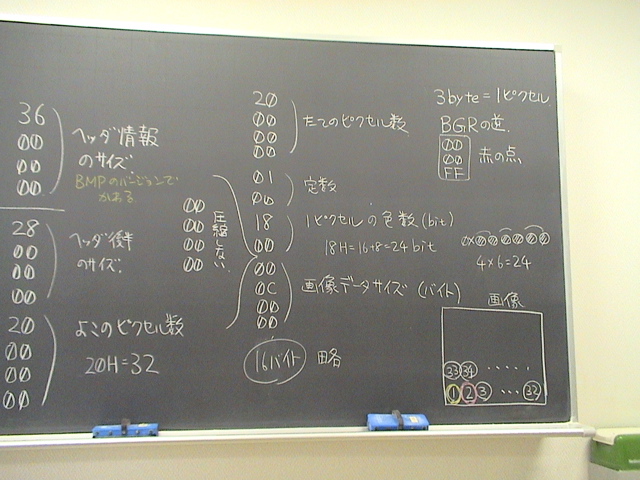 36
00
00
00
ヘッダ情報
のサイズ
BMPのバージョンで
かわる
28
00
00
00
ヘッダ後半
のサイズ.
20
00
00
00
よこのピクセル数
20H=32
00
00
00
00
圧縮しない.
20
00
00
00
たてのピクセル数
01
00
定数
18
00
1ピクセルの色数(bit)
18H=16+8=24 bit
00
0C
00
00
画像データサイズ (バイト)
16バイト 略
3byte=1ピクセル
BGRの逆.
00
00
FF
赤の点
4×6=24
画像
33 34 ・・・・・
1 2 3 ・・・ 32